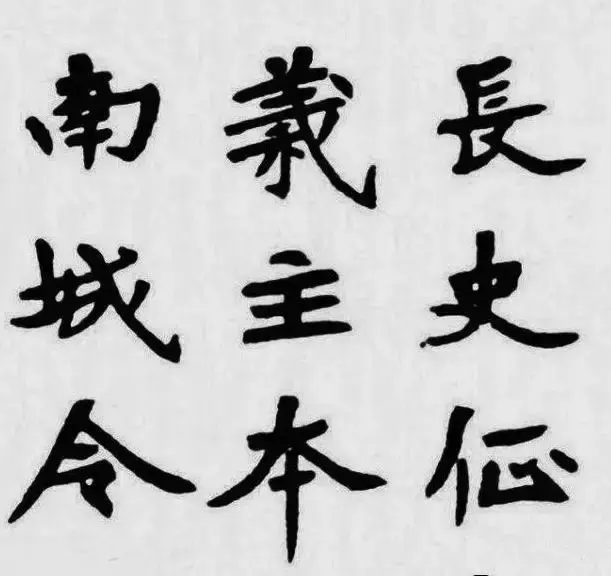 長史征
義主本
南城令